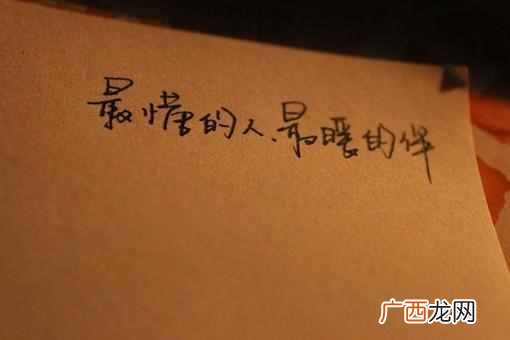 最懂的人、最暖的伴
广西龙网